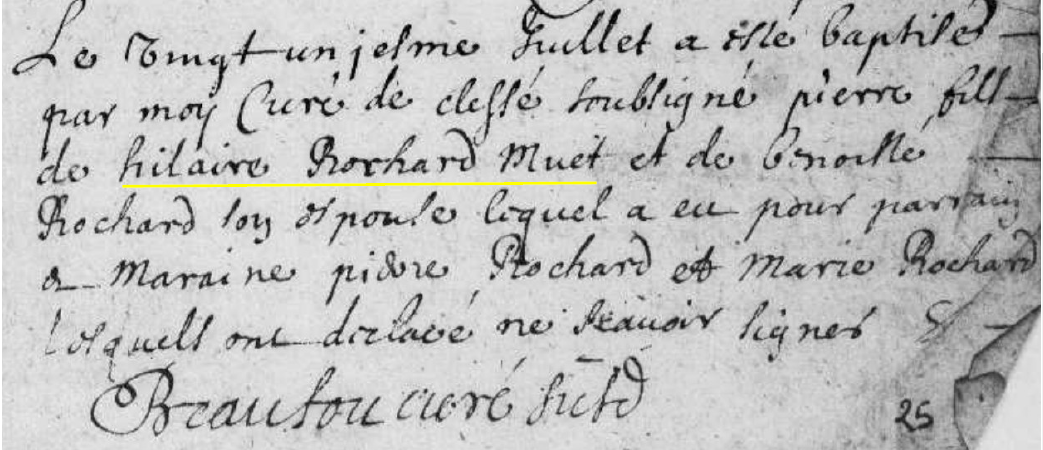 Le Vingt un jesme Juillet a esté baptisé
par moy Curé de clessé soubsigné pierre fils
de hilaire Rochard Muet et de benoisté
Rochard son espouse lequel a eu pour parrain
& Maraine pierre Rochard et Marie Rochard
lesquells ont declaré ne sçauoir signer
curé susd
25